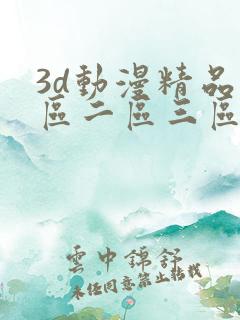 3d動漫精品
區二區三區
雲中錦舒
未经同意禁止转载